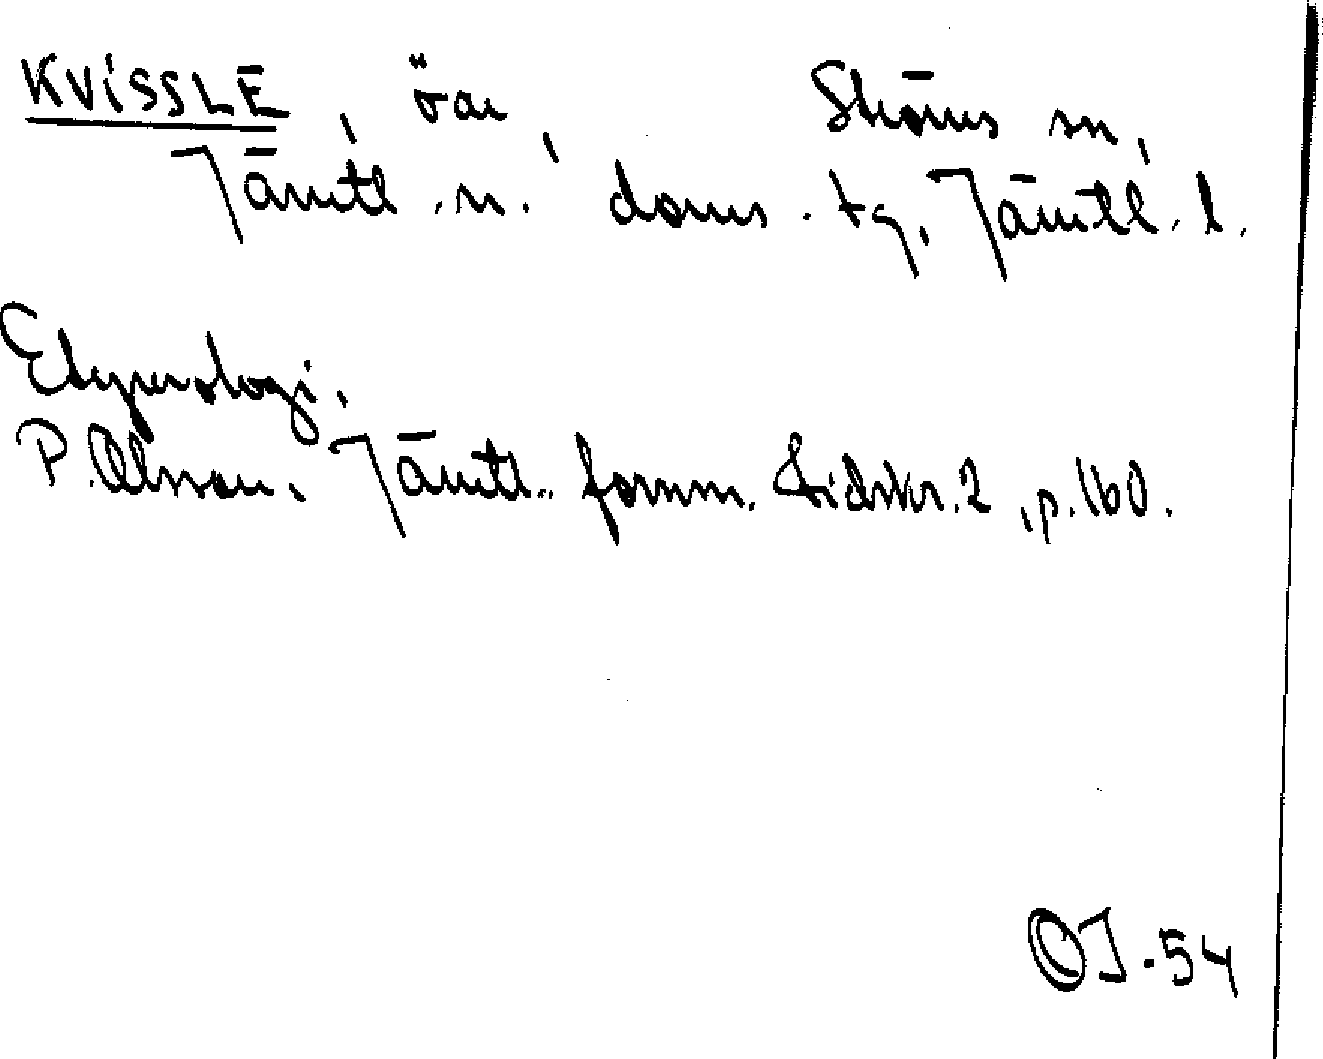 KVISSLE, öar, Ströms sn,
Jämtl. n. doms. tg, Jämtl. l.
Etymologi.
P. Olsson. Jämtl. fornm. tidskr. 2, p. 160.
OJ-54